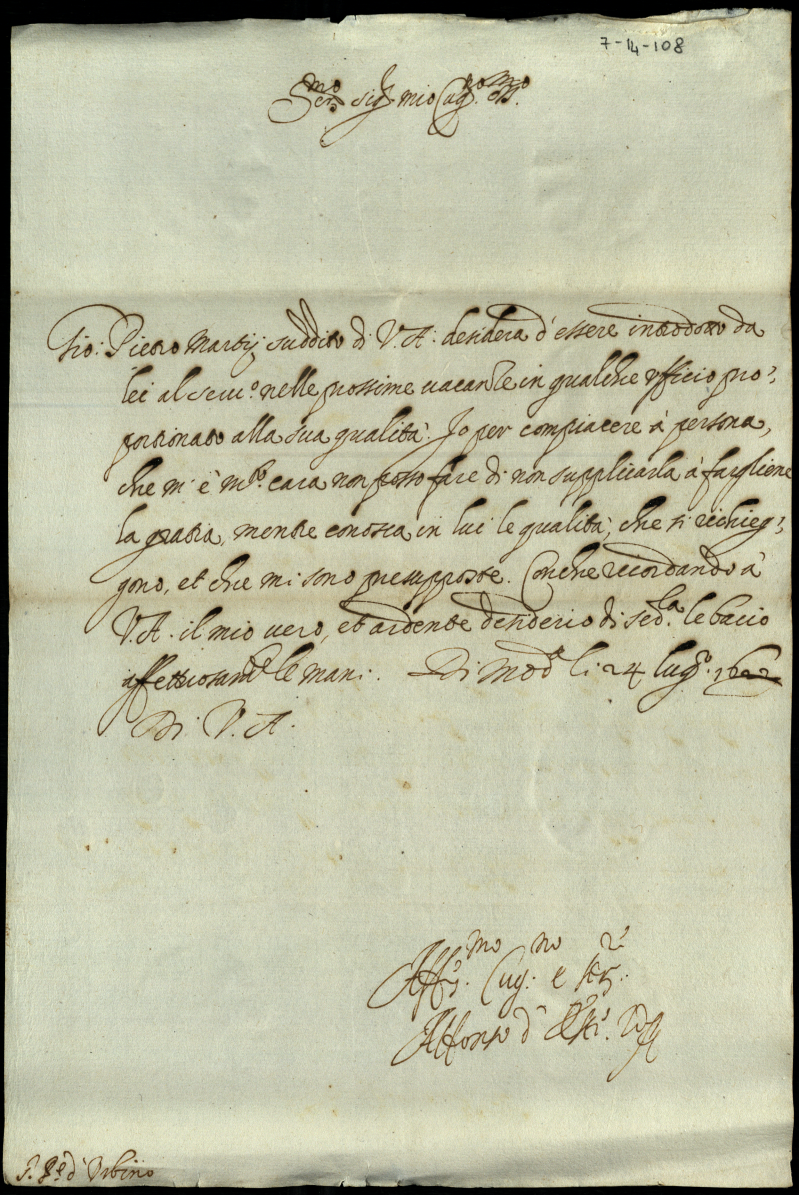 7-14-108
Ser.mo sig.r mio Cug.no oss.mo
Gio: Pietro Martij suddito di V.A. desidera d'essere introdotto da
lei al seru.o nelle prossime uacante in qualche ufficio pro,
portionato alla sua qualità. Io per compiacere à persona,
che m'è m.to cara non posso fare di non supplicarla à fargliene
la gratia, mentre conosca in lui le qualità, che si richieg,
gono, et che mi sono presupposte. Con che ricordando à
V.A. il mio uero, et ardente desiderio di ser.la le bacio
affettiosam.te le mani. Di Mod.a li 24 lug.o 1622
Di V.A.
Aff.mo Cug.no e ser.re
Alfonso d'Este
S. D. d'Urbino